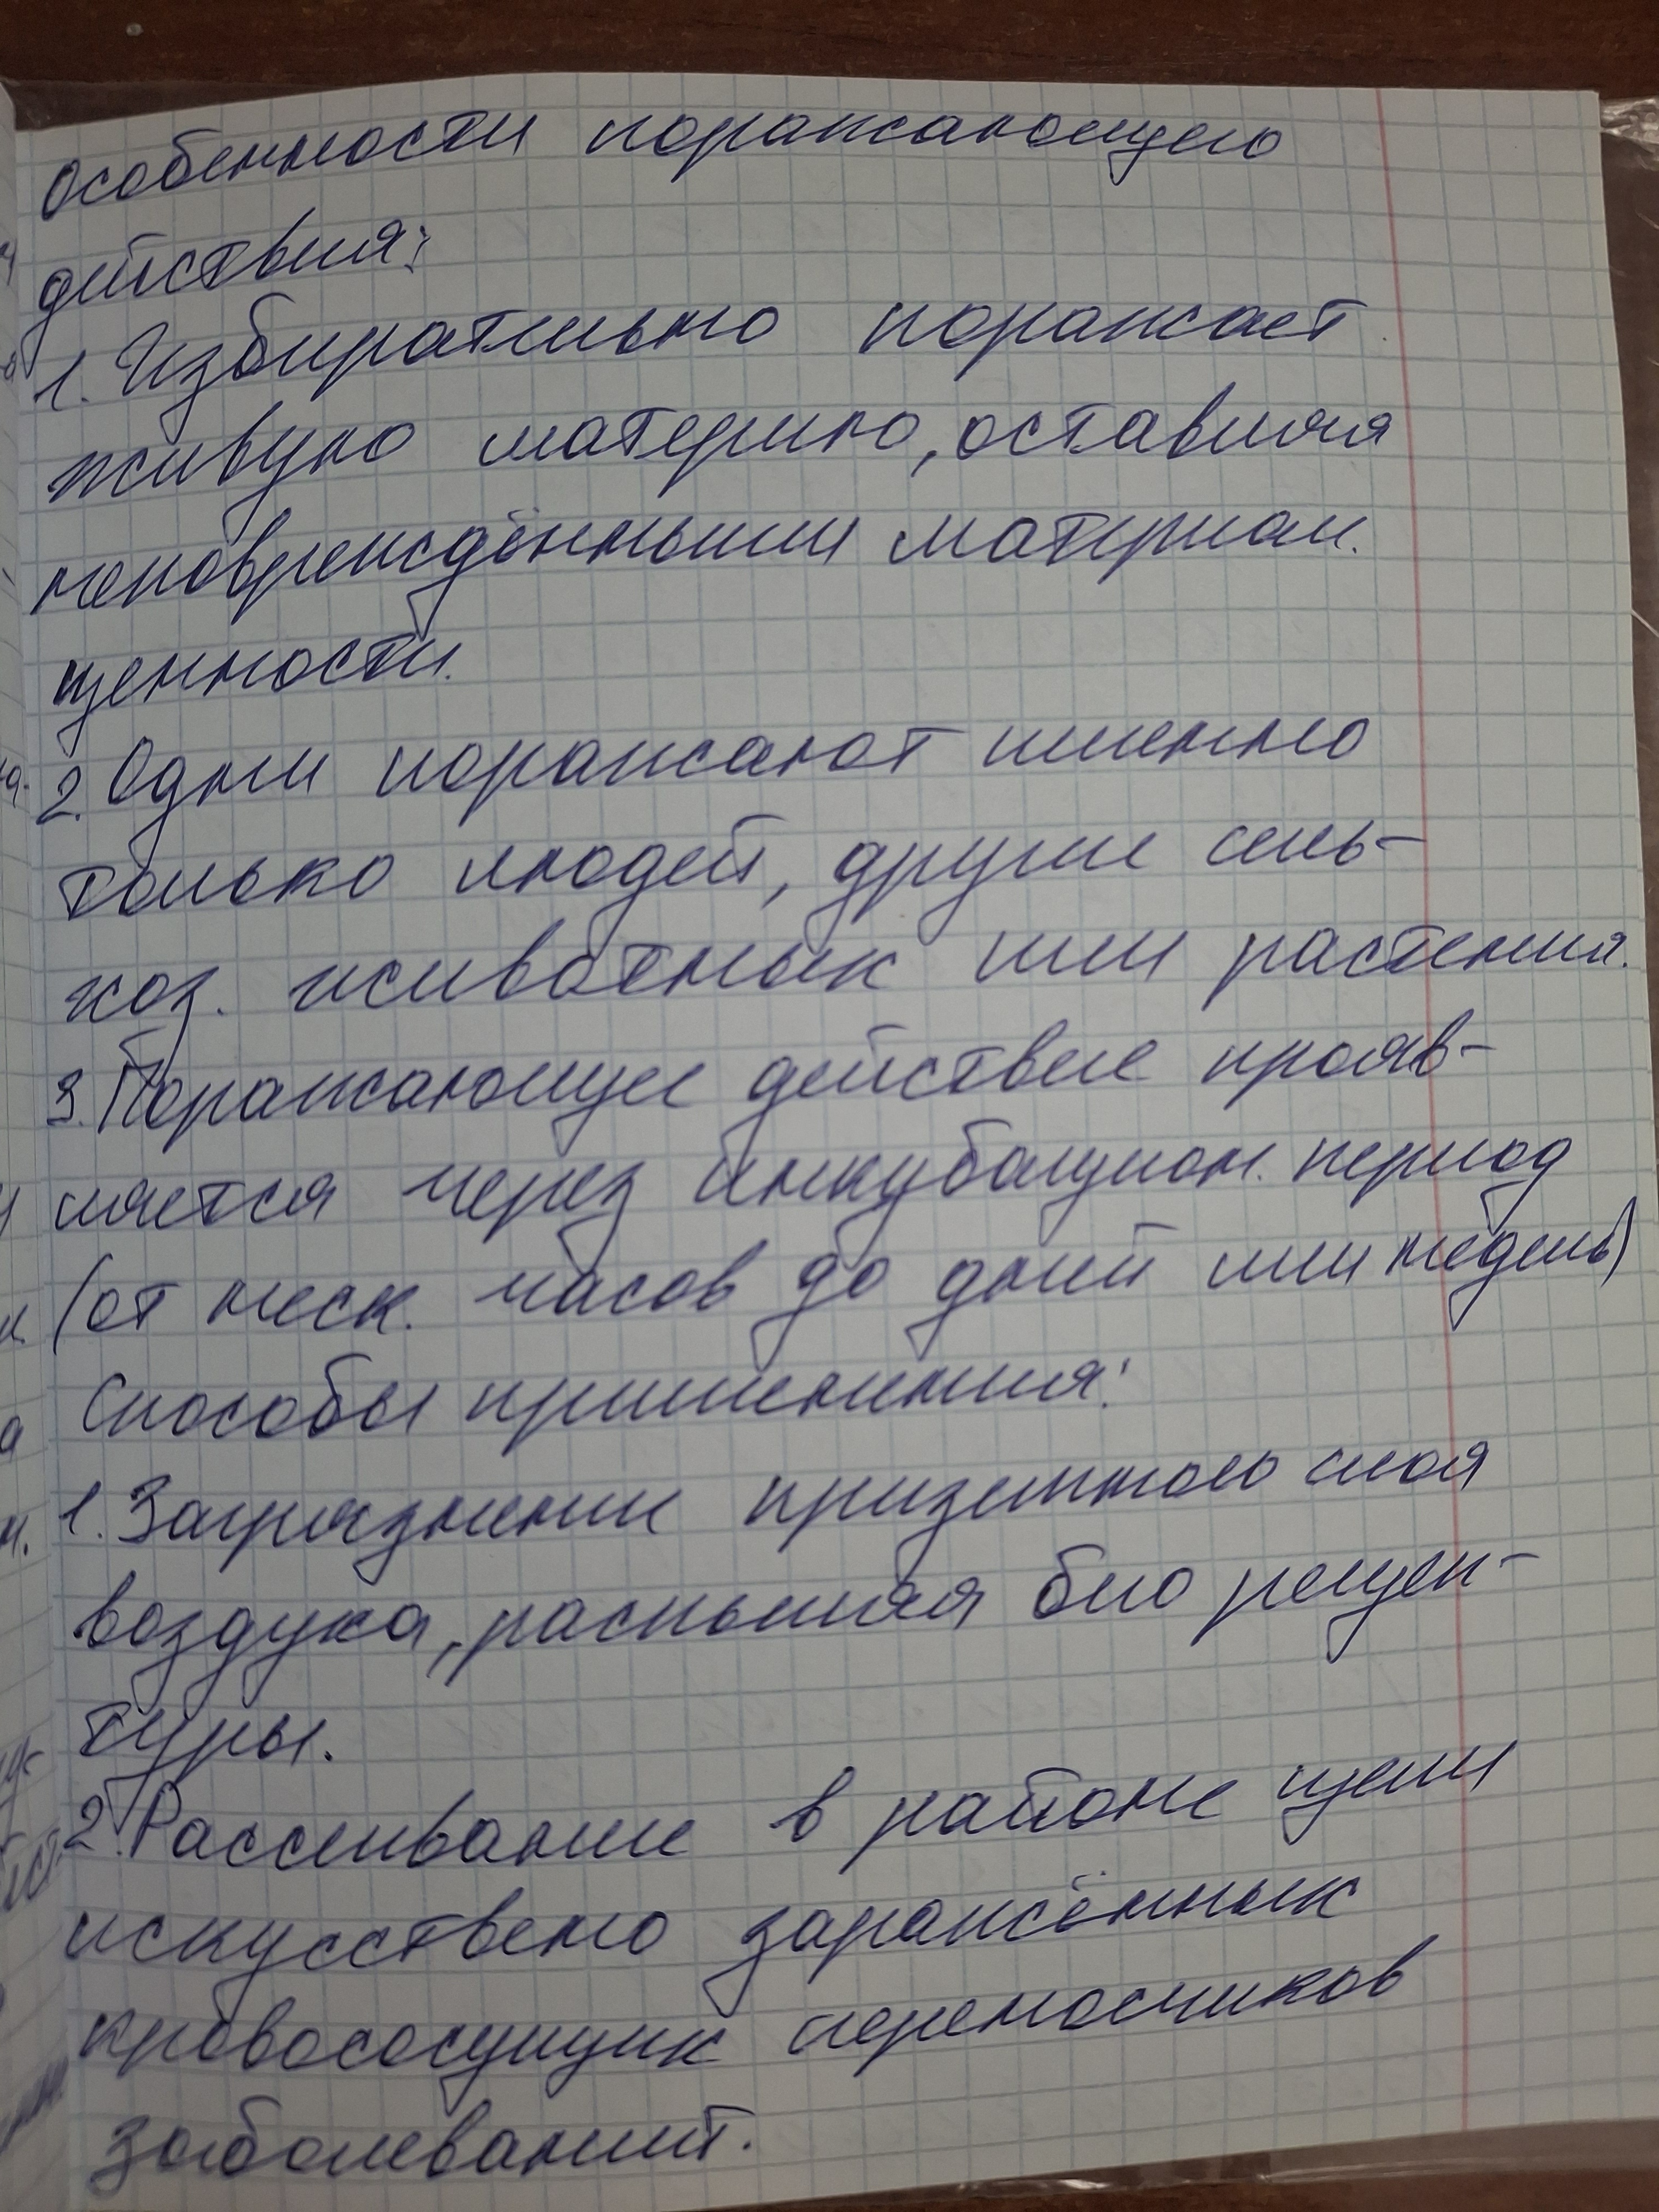 Особенности поражающего
действия:
1. Избирательно поражает
живую материю, оставляя
неповреждёнными материал.
ценности.
2. Одни поражают именно
только людей, другие сель-
хоз. живатных или растения.
3. Поражающее действие прояв-
ляется через инкубацион. период
(от неск. часов до дней или недель)
Способы применения:
1. Загрязнении приземного слоя
воздуха, распыляя био рецеп-
туры.
2. Рассеивание в районе цели
искусствено заражённых
кровососущих переносчиков
заболеваний.